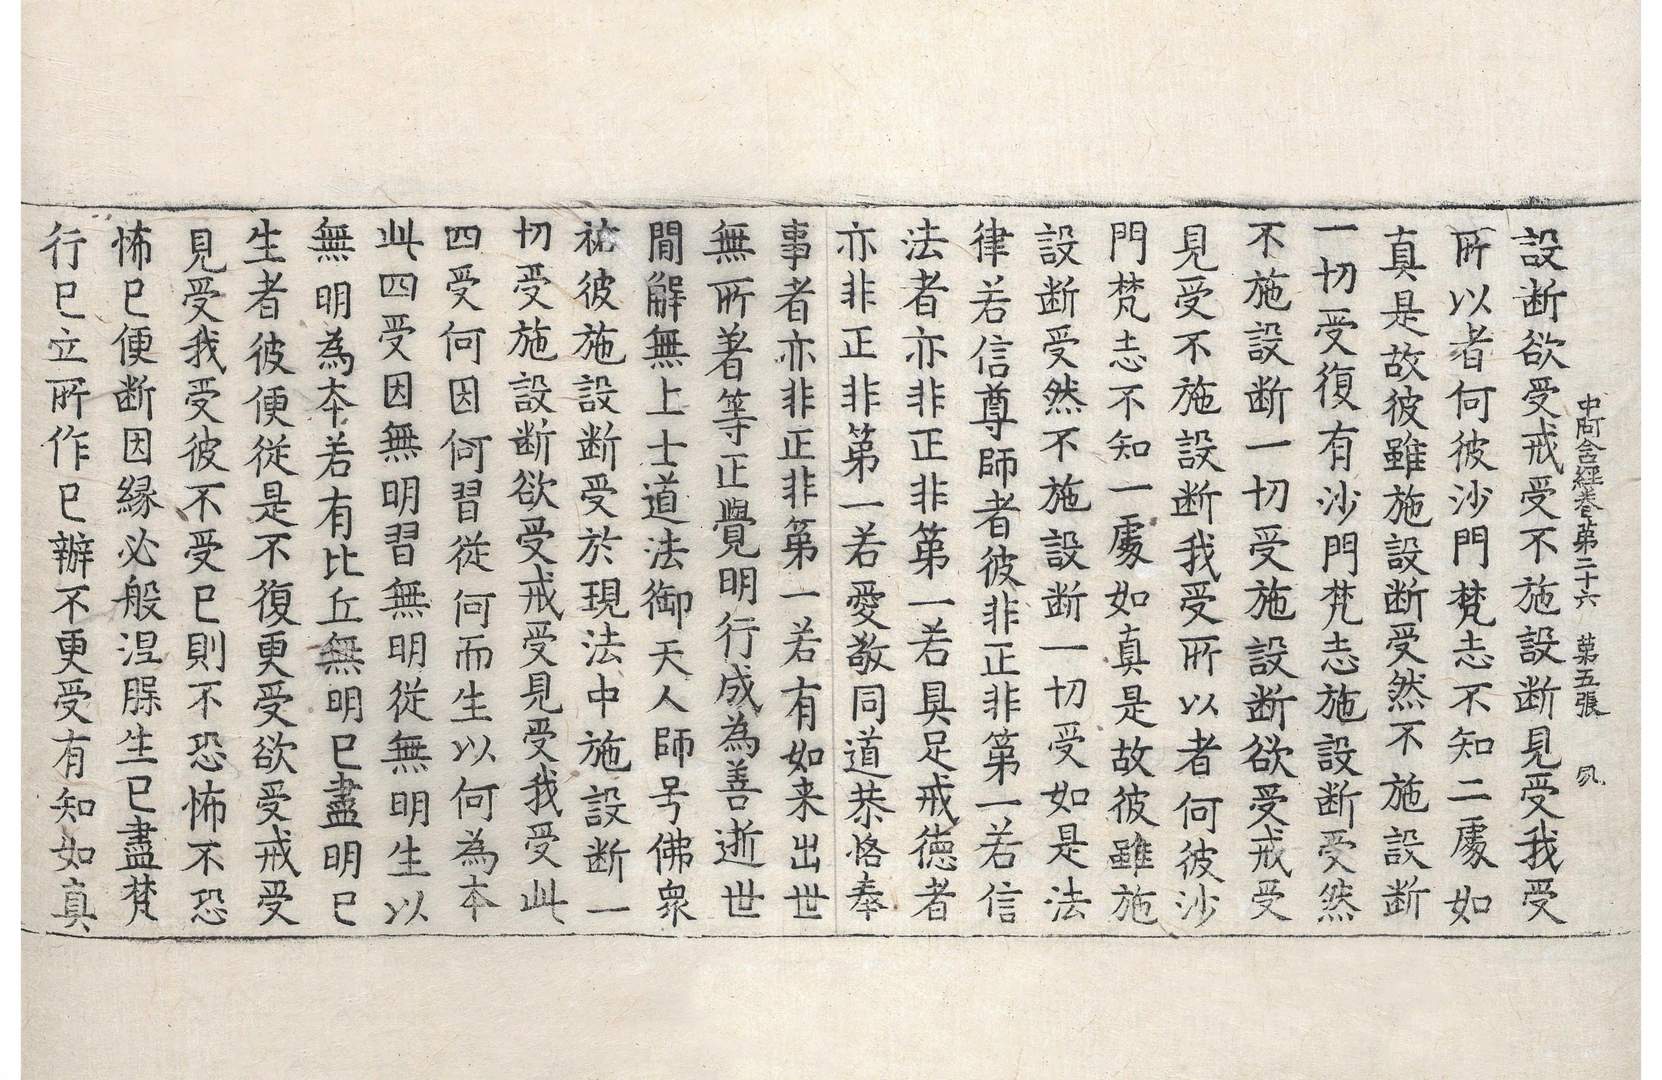 中阿含經卷第二十六　第五張　夙
設断欲受戒受不施設断見受我受
所以者何彼沙門梵志不知二處如
真是故彼雖施設断受然不施設断
一切受復有沙門梵志施設断受然
不施設断一切受施設断欲受戒受
見受不施設断我受所以者何彼沙
門梵志不知一處如真是故彼雖施
設断受然不施設断一切受如是法
律若信尊師者彼非正非第一若信
法者亦非正非第一若具足戒德者
亦非正非第一若愛敬同道恭恪奉
事者亦非正非第一若有如来出世
無所著等正覺明行成為善逝世
間解無上士道法御天人師号佛衆
祐彼施設断受於現法中施設断一
切受施設断欲受戒受見受我受此
四受何因何習從何而生以何為本
此四受因無明習無明從無明生以
無明為夲若有比丘無明已盡明已
生者彼便從是不復更受欲受戒受
見受我受彼不受已則不恐怖不恐
怖已便断因緣必般涅槃生已盡梵
行已立所作已辦不更受有知如真